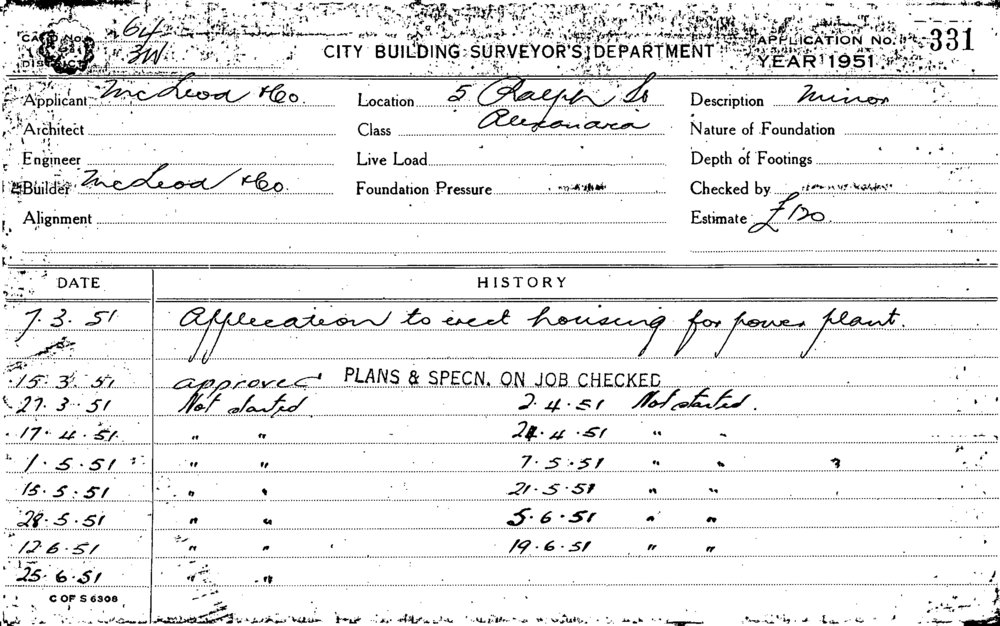 CARD No. 64
1
DISTRICT 3W
CITY BUILDING SURVEYOR'S DEPARTMENT
APPLICATION No. 331
YEAR 1951
Applicant McLeod & Co. Location 5 Ralph St Description Minor
Architect Class Alexandria Nature of Foundation
Engineer Live Load Depth of Footings
Builder McLeod & Co. Foundation Pressure Checked by
Alignment Estimate £120
DATE HISTORY
7.3.51 Application to erect housing for power plant.
15.3.51 approved PLANS & SPECN. ON JOB CHECKED
27.3.51 Not started 2.4.51 Not started.
17.4.51 " " 24.4.51 " "
1.5.51 " " 7.5.51 " "
15.5.51 " " 21.5.51 " "
28.5.51 " " 5.6.51 " "
12.6.51 " " 19.6.51 " "
25.6.51 " "
C OF S 6308